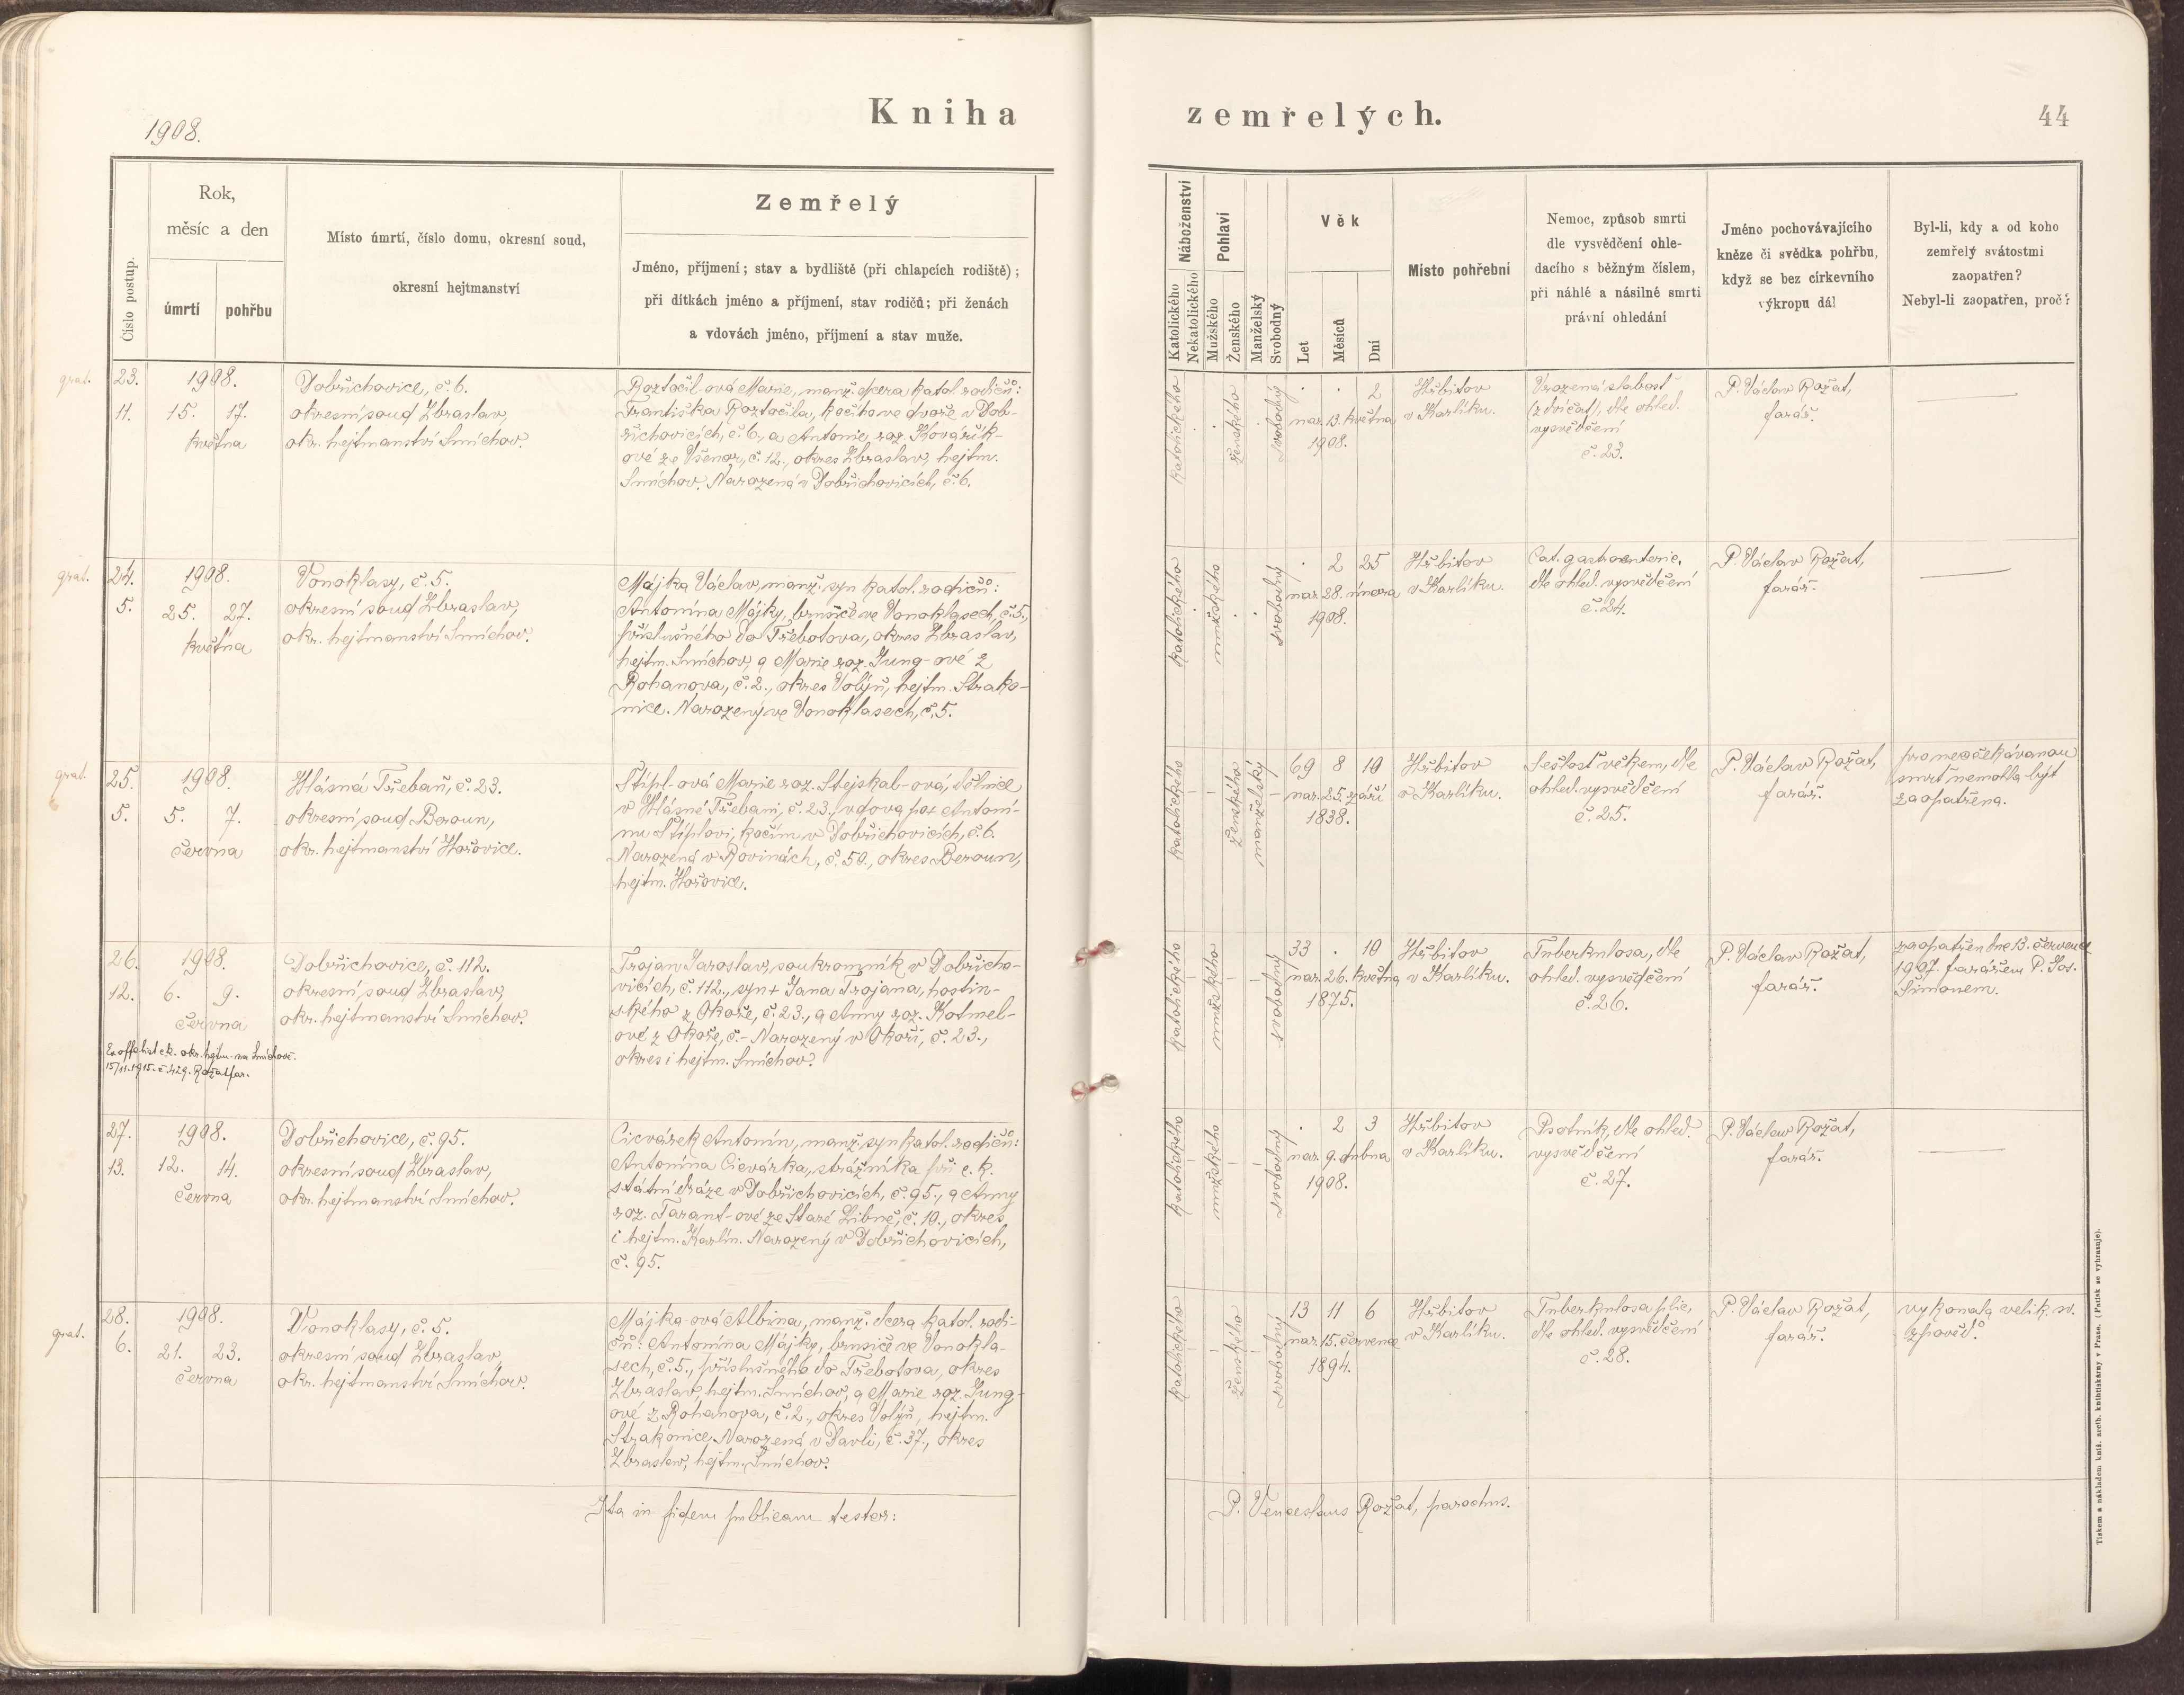 1908.
Kniha
zemřelých.
44
Číslo postup.
Rok,
měsíc a den
úmrtí
pohřbu
Místo úmrtí, číslo domu, okresní soud,
okresní hejtmanství
Zemřelý
Jméno, příjmení; stav a bydliště (při chlapcích rodiště);
při dítkách jméno a příjmení, stav rodičů; při ženách
a vdovách jméno, příjmení a stav muže.
Náboženství
Katolického
Nekatolického
Pohlaví
Mužského
Ženského
Manželský
Svobodný
Věk
Let
Měsíců
Dní
Místo pohřební
Nemoc, způsob smrti
dle vysvědčení ohle-
dacího s běžným číslem,
při náhlé a násilné smrti
právní ohledání
Jméno pochovávajícího
kněze či svědka pohřbu,
když se bez církevního
výkropu dál
Byl-li, kdy a od koho
zemřelý svátostmi
zaopatřen?
Nebyl-li zaopatřen, proč?
grat.
23.
11.
1908.
15. 17.
května
Dobřichovice, č. 6.
okresní soud Zbraslav,
okr. hejtmanství Smíchov.
Roztočil-ová Marie, manž. dcera katol. rodičů:
Františka Roztočila, kočího ve dvoře v Dob-
řichovicích, č. 6., a Antonie, roz. Kovářík-
ové ze Všenor, č. 12., okres Zbraslav, hejtm.
Smíchov. Narozená v Dobřichovicích, č. 6.
katolického
ženského
svobodný
. . 2
nar. 13. května
1908.
Hřbitov
v Karlíku.
Vrozená slabost
(z dvojčat), dle ohled.
vysvědčení
č. 23.
P. Václav Rožat,
farář.
grat.
24.
5.
1908.
25. 27.
května
Vonoklasy, č. 5.
okresní soud Zbraslav,
okr. hejtmanství Smíchov.
Májka Václav, manž. syn katol. rodičů:
Antonína Májky, brusiče ve Vonoklasech, č. 5.,
příslušného do Třebotova, okres Zbraslav,
hejtm. Smíchov, a Marie roz. Jung-ové z
Rohanova, č. 2., okres Volyň, hejtm. Strako-
nice. Narozený ve Vonoklasech, č. 5.
katolického
mužského
svobodný
. 2 25
nar. 28. února
1908.
Hřbitov
v Karlíku.
Cat. gastroenterie,
dle ohled. vysvědčení
č. 24.
P. Václav Rožat,
farář.
grat.
25.
5.
1908.
5. 7.
června
Hlásná Třebaň, č. 23.
okresní soud Beroun,
okr. hejtmanství Hořovice.
Štípl-ová Marie roz. Stejskal-ová, dělnice
v Hlásné Třebani, č. 23., vdova po + Antoní-
nu Štíplovi, kočím v Dobřichovicích, č. 6.
Narozená v Rovinách, č. 50., okres Beroun,
hejtm. Hořovice.
katolického
ženského
manželský
69 8 10
nar. 25. září
1838.
Hřbitov
v Karlíku.
Sešlost věkem, dle
ohled. vysvědčení
č. 25.
P. Václav Rožat,
farář.
pro neočekávanou
smrt nemohla být
zaopatřena.
26.
12.
1908.
6. 9.
června
Dobřichovice, č. 112.
okresní soud Zbraslav,
okr. hejtmanství Smíchov.
Ex offo list c.k. okr. hejtm. na Smíchově.
15/11. 1915. č. 429. Rožat far.
Trojan Jaroslav, soukromník v Dobřicho-
vicích, č. 112., syn + Jana Trojana, hostin-
ského z Okoře, č. 23., a Anny roz. Kotmel-
ové z Okoře, č.- Narozený v Okoři, č. 23.,
okres i hejtm. Smíchov.
katolického
mužského
svobodný
33 . 10
nar. 26. května
1875.
Hřbitov
v Karlíku.
Tuberkulosa, dle
ohled. vysvědčení
č. 26.
P. Václav Rožat,
farář.
zaopatřen dne 13. července
1907. farářem P. Jos.
Šimonem.
27.
13.
1908.
12. 14.
června
Dobřichovice, č. 95.
okresní soud Zbraslav,
okr. hejtmanství Smíchov.
Cicvárek Antonín, manž. syn katol. rodičů:
Antonína Cicvárka, strážníka při c. k.
státní dráze v Dobřichovicích, č. 95., a Anny
roz. Tarant-ové ze Staré Libně, č. 10., okres
i hejtm. Karlín. Narozený v Dobřichovicích,
č. 95.
katolického
mužského
svobodný
. 2 3
nar. 9. dubna
1908.
Hřbitov
v Karlíku.
Psotník, dle ohled.
vysvědčení
č. 27.
P. Václav Rožat,
farář.
grat.
28.
6.
1908.
21. 23.
června
Vonoklasy, č. 5.
okresní soud Zbraslav,
okr. hejtmanství Smíchov.
Májka-ová Albina, manž. dcera katol. rodi-
čů: Antonína Májky, brusiče ve Vonokla-
sech, č. 5., příslušného do Třebotova, okres
Zbraslav, hejtm. Smíchov, a Marie roz. Jung-
ové z Rohanova, č. 2., okres Volyň, hejtm.
Strakonice. Narozená v Davli, č. 37., okres
Zbraslav, hejtm. Smíchov.
katolického
ženského
svobodný
13 11 6
nar. 15. července
1894.
Hřbitov
v Karlíku.
Tuberkulosa plic,
dle ohled. vysvědčení
č. 28.
P. Václav Rožat,
farář.
vykonala velik. sv.
zpověď.
Ita in fidem publicam testor:
P. Venceslaus Rožat, parochus.
Tiskem a nákladem kníž. arcib. knihtiskárny v Praze. (Patisk se vyhrazuje).